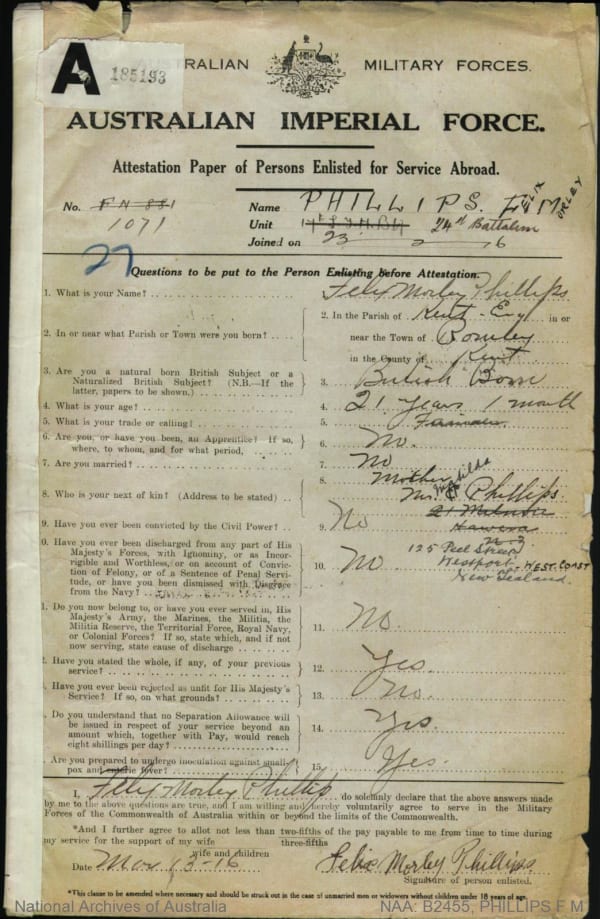 A 185193
RALIAN MILITARY FORCES.
AUSTRALIAN IMPERIAL FORCE.
Attestation Paper of Persons Enlisted for Service Abroad.
No. FN 881 Name PHILLIPS. F M FELIX MORLEY
1071 Unit 24th Battalion
Joined on 23 2 16
27
Questions to be put to the Person Enlisting before Attestation.
1. What is your Name? Felix Morley Phillips
2. In or near what Parish or Town were you born? 2. In the Parish of Kent - Eng in or
near the Town of Bomley
in the County of Kent
3. Are you a natural born British Subject or a
Naturalized British Subject? (N.B.—If the
latter, papers to be shown.) 3. British Born
4. What is your age? 4. 21 years 1 month
5. What is your trade or calling? 5. Farmer
6. Are you, or have you been, an Apprentice? If so,
where, to whom, and for what period. 6. No.
7. Are you married? 7. No
8. Who is your next of kin? (Address to be stated) 8. Mother Mathilda
Mrs. Phillips.
Hawera
N.Z
125 Peel Street
Westport. WEST COAST
New Zealand.
9. Have you ever been convicted by the Civil Power? 9. No
0. Have you ever been discharged from any part of His
Majesty's Forces, with Ignominy, or as Incor-
rigible and Worthless, or on account of Convic-
tion of Felony, or of a Sentence of Penal Servi-
tude, or have you been dismissed with Disgrace
from the Navy? 10. No
1. Do you now belong to, or have you ever served in, His
Majesty's Army, the Marines, the Militia, the
Militia Reserve, the Territorial Force, Royal Navy,
or Colonial Forces? If so, state which, and if not
now serving, state cause of discharge 11. No.
2. Have you stated the whole, if any, of your previous
service? 12. Yes
. Have you ever been rejected as unfit for His Majesty's
Service? If so, on what grounds? 13. No.
Do you understand that no Separation Allowance will
be issued in respect of your service beyond an
amount which, together with Pay, would reach
eight shillings per day? 14. Yes.
. Are you prepared to undergo inoculation against small-
pox and fever? 15. Yes.
I, Felix Morley Phillip do solemnly declare that the above answers made
by me to the above questions are true, and I am willing and hereby voluntarily agree to serve in the Military
Forces of the Commonwealth of Australia within or beyond the limits of the Commonwealth.
*And I further agree to allot not less than two-fifths of the pay payable to me from time to time during
three-fifths
my service for the support of my wife
wife and children
Date Mar 13-16 Felix Morley Phillips
Signature of person enlisted.
*This clause to be amended where necessary and should be struck out in the case of unmarried men or widowers without children under 18 years of age.
National Archives of Australia NAA: B2455, PHILLIPS F M